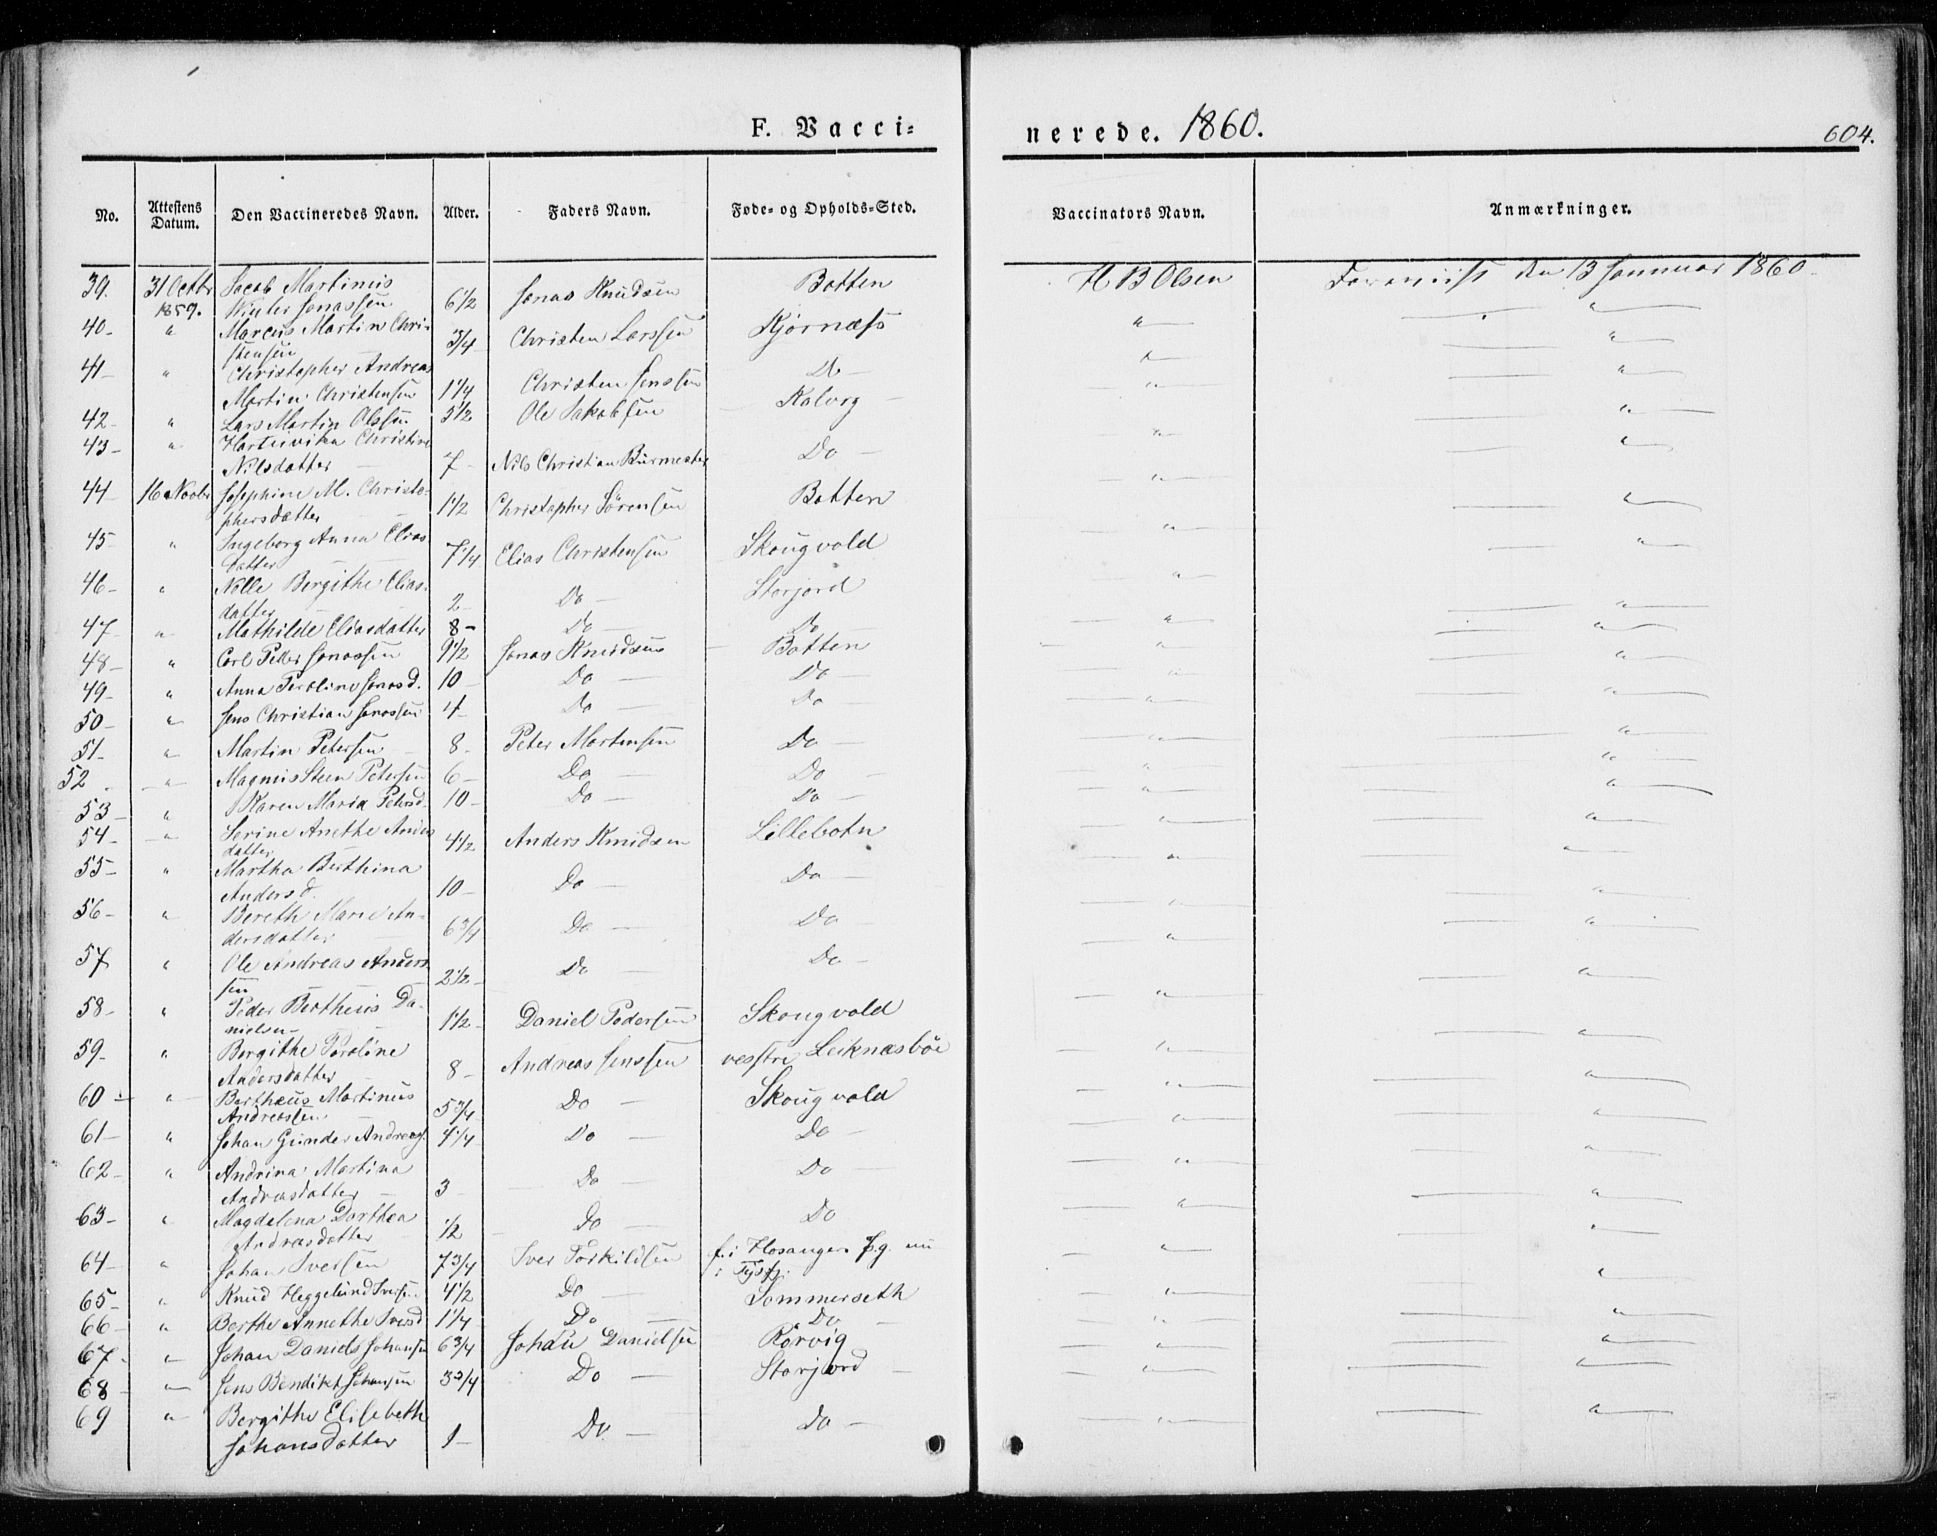 F. Vacci=
nerede. 1860.
604.
No. Attestens Datum. Den Vaccineredes Navn. Alder. Faders Navn. Føde- og Opholds-Sted. Vaccinators Navn. Anmærkninger.
39. 31 Octbr 1859. Jacob Martinus Winter Jonassen 6 1/2 Jonas Knudsen Botten H B Olsen Foreviist den 13 Januar 1860
40- " Marcus Martin Christensen 3/4 Christen Larssen Kjørnæss " "
41- " Christopher Andreas Martin Christensen 1 1/4 Christen Jenssen Do - " "
42- " Lars Martin Olssen 5 1/2 Ole Jakobsen Kalvog - " "
43- " Christine Nilsdatter 7- Nils Christian Burmester Do - " "
44- 16 Novbr Josephine M. Christophersdatter 1 1/2 Christopher Sørensen Botten " "
45- " Ingeborg Anna Eliasdatter 7 1/4 Elias Christensen Skougvold " "
46- " Nille Bergithe Eliasdatter 2- Do - Storjord " "
47- " Mathilde Eliasdatter 8- Do - Do " "
48- " Carl Peter Jonassen 9 1/2 Jonas Knudsen - Botten " "
49- " Anna Peroline Jonasd. 10- Do - Do - " "
50- " Jens Christian Jonassen 4- Do - Do - " "
51- " Martin Petersen 8- Peter Mortensen Do - " "
52- " Magnus Steen Petersen 6- Do - Do - " "
53- " Karen Maria Petersd. 10- Do - Do - " "
54- " Serine Anethe Andersdatter 4 1/2 Anders Knudsen Lillebotn " "
55- " Martha Berthina Andersd. 10- Do - Do - " "
56- " Bereth Marie Andersdatter 6 3/4 Do - Do - " "
57 " Ole Andreas Anderssen 2 1/2 Do - Do - " "
58- " Peder Bertheus Danielsen 1 1/2- Daniel Pedersen Skougvold " "
59- " Bergithe Peroline Andersdatter 8- Andreas Jenssen vestre Leiknæsbøe " "
60- " Bertheus Martinus Andreassen 5 3/4 Do - Skougvold " "
61- " Johan Gunder Andreass. 4 1/4 Do - Do - " "
62- " Andrina Martina Andreasdatter 3- Do - Do - " "
63- " Magdelena Dorthea Andreasdatter 1/2 Do - Do " "
64- " Johan Iversen 7 3/4 Iver Torkildsen f. i Hosanger Pg. nu i Tysfj. " "
65- " Knud Heggelund Iversen 4 1/2 Do - Sommerseth " "
66- " Berthe Annethe Iversd 1 1/4 Do - Do - " "
67- " Johan Daniels Johansen 6 3/4 Johan Danielsen Rørvig " "
68- " Jens Bendikt Johansen 3 3/4 Do - Storjord - " "
69 " Bergithe Elisebeth Johansdatter 1- Do - Do - " "